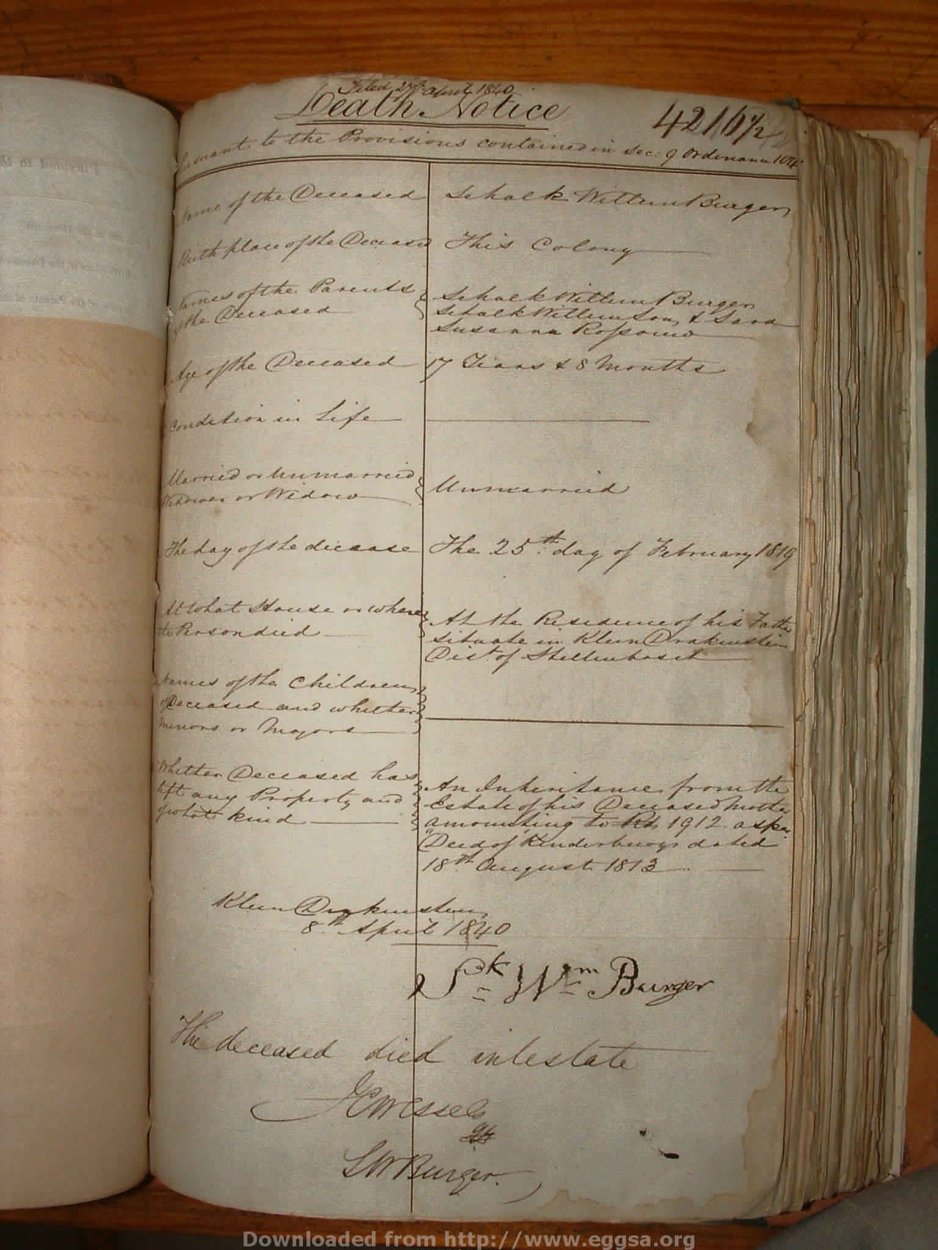 Filed 27th April 1840
Death Notice
4216 1/2
Pursuant to the Provisions contained in Sec. 9 Ordinance 104
Name of the Deceased Schalk Willem Burger
Birth place of the Deceased This Colony
Names of the Parents of the Deceased Schalk Willem Burger
Schalk Willem Son & Sara
Susanna Rossouw
Age of the Deceased 17 Years & 8 Months
Condition in Life
Married or Unmarried
Widower or Widow Unmarried
The day of the decease The 25th day of February 1819
At what House or where
the Person died
At the Residence of his Father
Situate in Klein Drakenstein
Dist of Stellenbosch
Names of the Children
of Deceased and whether
Minors or Majors
Whether Deceased has
left any Property and
of what kind
An Inheritance from the
Estate of his Deceased Mother
amounting to 1912. as per
"Deed of Kinderbewys dated
18th August 1813
Klein Drakenstein
8th April 1840
Sk Wm Burger
The deceased died intestate
SW Burger.
Downloaded from http://www.eggsa.org